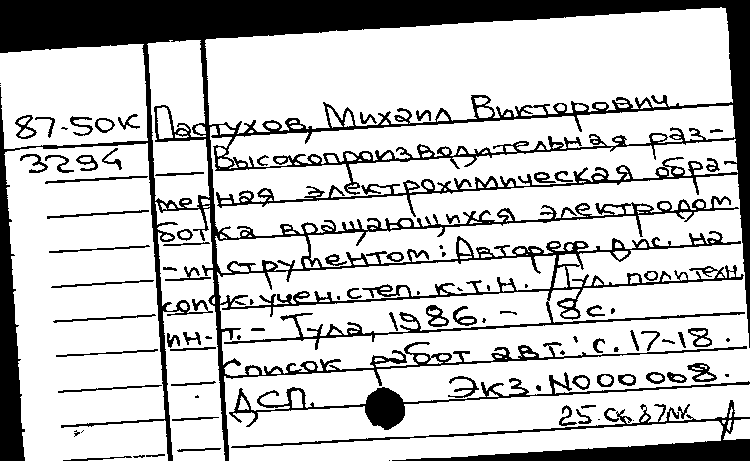 87-50К Пастухов, Михаил Викторович.
3294 Высокопроизводительная раз-
мерная электрохимическая обра-
ботка вращающихся электродом
-инструментом: Автореф. дис. на
соиск. учен. степ. к.т.н. / Тул. политехн.
ин-т. - Тула, 1986. - 18 с.
Список работ авт.: с. 17-18.
ДСП. Экз. N000008.